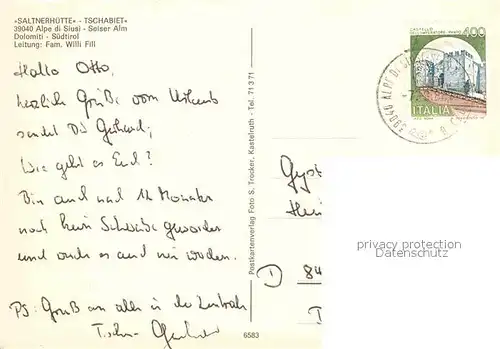 »SALTNERHÜTTE« - TSCHAPIET«
39040 Alpe di Siusi - Seiser Alm
Dolomiti - Südtirol
Leitung: Fam. Willi Fill
Hallo Otto,
herzliche Grüße vom Urlaub
sendet Dir Gerhard,
Wie geht es Euch?
Bin auch nach 12 Monaten
noch kein Schwabe geworden
und werde es auch nie werden.
PS: Gruß an alle in der Zentrale
Tschau Gerhard
Postkartenverlag Foto S. Trocker, Kastelruth - Tel. 71 3 71
6583
400
ITALIA
39040 ALPE DI
D
privacy protection
VERLAG